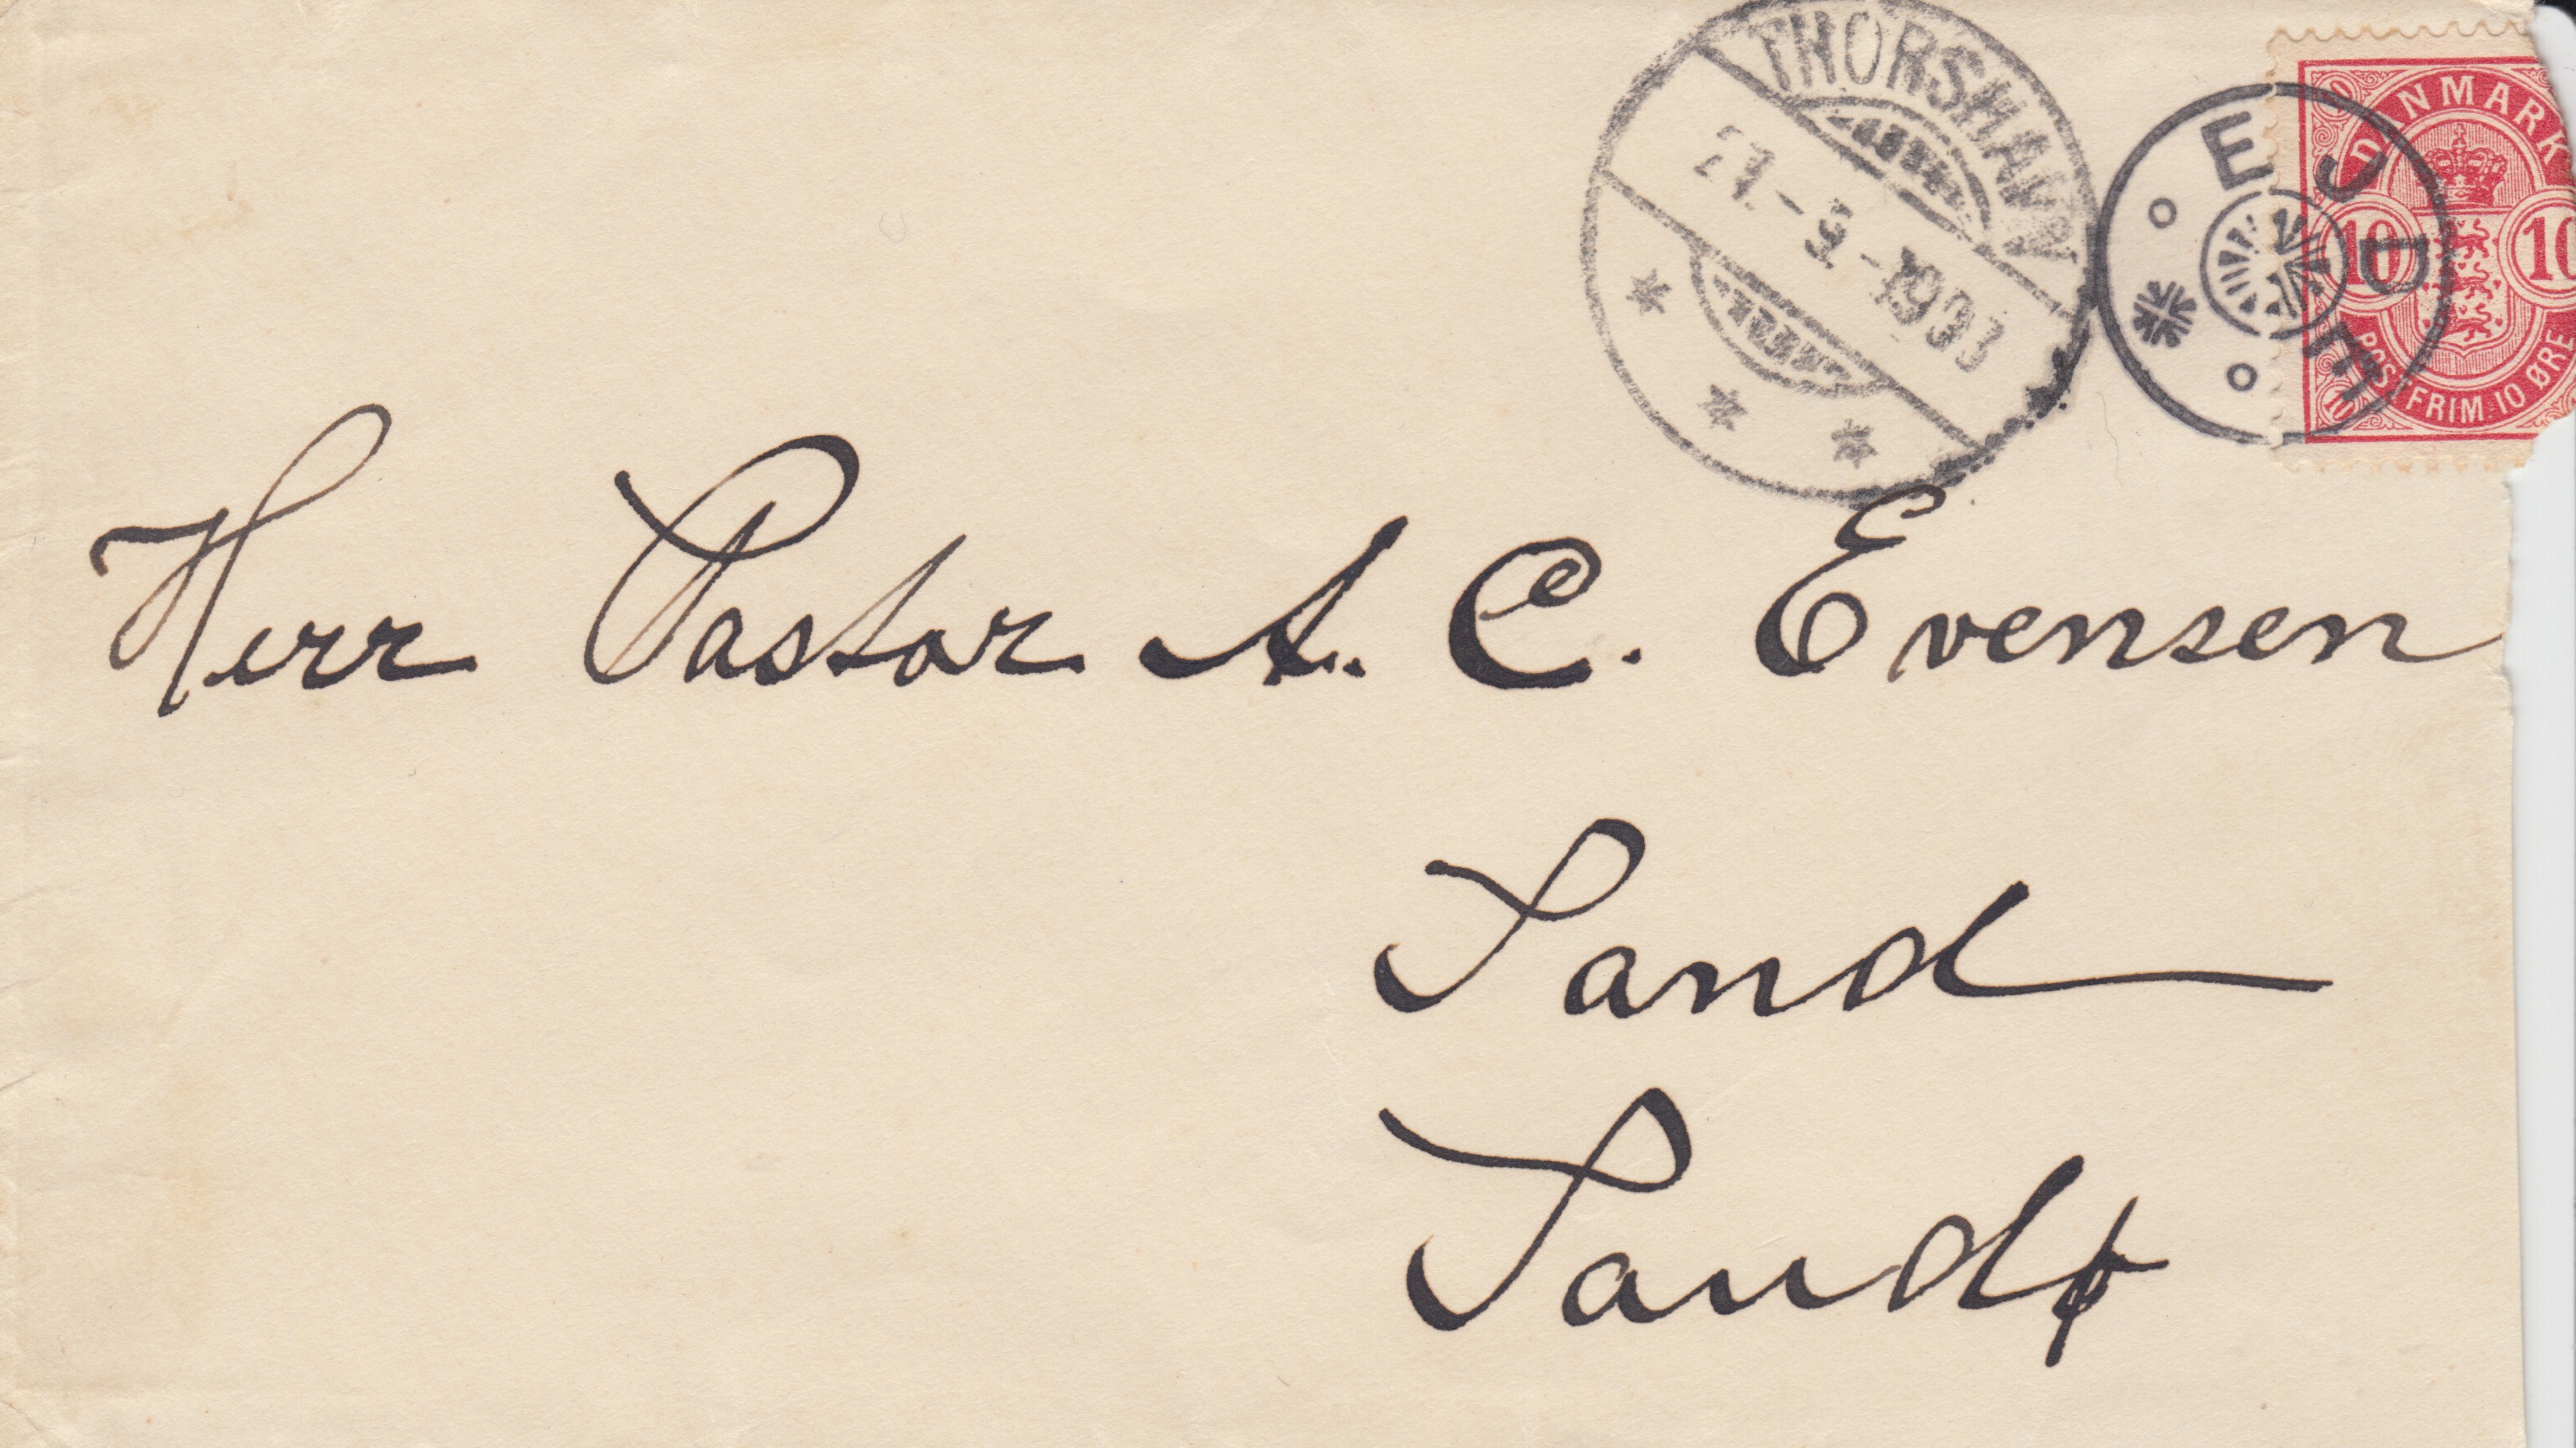 THORSHAVN
21.-9.-1903
EJDE
DANMARK
10 10
POSTFRIM. 10 ØRE
Herr Pastor A. C. Evensen
Sand
Sandø